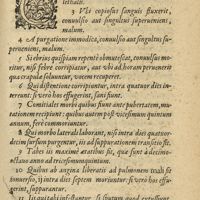 lethale.
3 Vbi copiosus sanguis fluxerit,
conuulsio aut singultus superueniens,
malum.
4 A purgatione immodica, conuulsio aut singultus su-
perueniens, malum.
5 Si ebrius quispiam repente obmutescat, conuulsus mo-
ritur, nisi febre corripiatur, aut vbi ad horam peruenerit
qua crapula soluuntur, vocem recuperet.
6 Qui distentione corripiuntur, intra quatuor dies in-
tereunt: si verò hos effugerint, sani fiunt.
7 Comitiales morbi quibus fiunt ante pubertatem, mu-
tationem recipiunt: quibus autem post vicesimum quintum
annum, ferè commoriuntur.
8 Qui morbo laterali laborant, nisi intra dies quatuor-
decim sursum purgentur, iis ad suppurationem transitio fit.
9 Tabes iis maximè ætatibus fit, quæ sunt à decimo-
octauo anno ad tricesimumquintum.
10 Quibus ab angina liberatis ad pulmones malum
tionuertit, ij intra dies septem moriuntur: si verò hos ef-
fugerint, suppurantur.